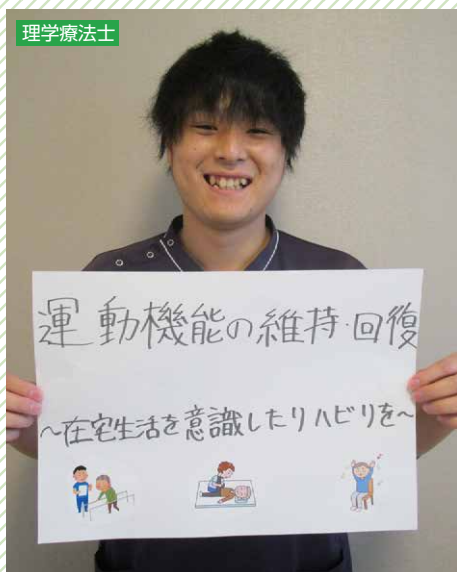 理学療法士
運動機能の維持・回復
~在宅生活を意識したリハビリを~